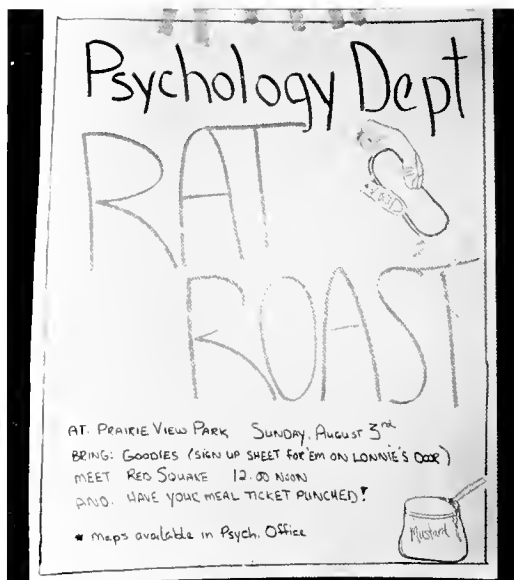 Psychology Dept
RAT
ROAST
AT: PRAIRIE VIEW PARK SUNDAY, AUGUST 3rd
BRING: GOODIES (SIGN UP SHEET FOR 'EM ON LONNIE'S DOOR)
MEET RED SQUARE 12.00 NOON
AND. HAVE YOUR MEAL TICKET PUNCHED!
* maps available in Psych. Office
Mustard